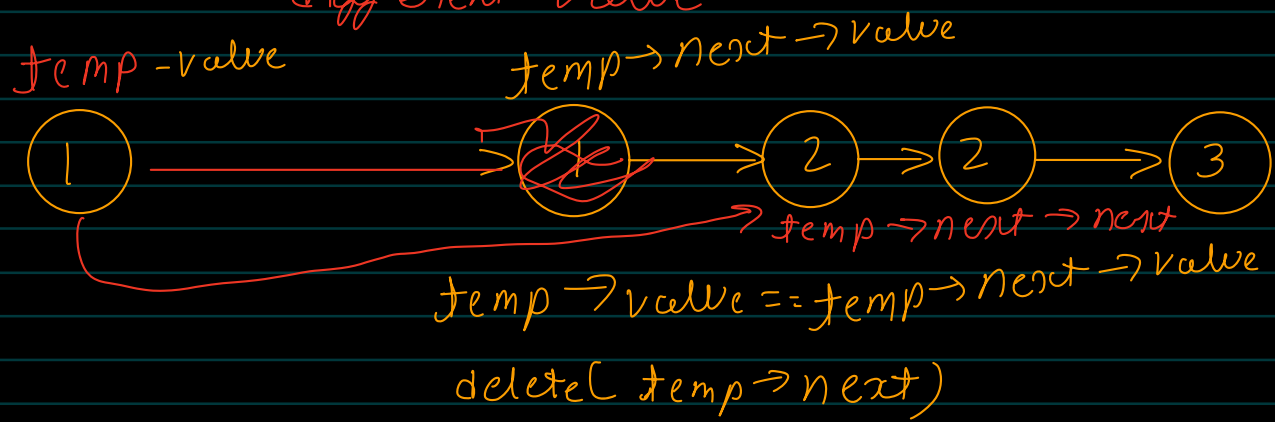 different value
temp - value
temp → next → value
1 1 2 2 3
temp → next → next
temp → value == temp → next → value
delete( temp → next)